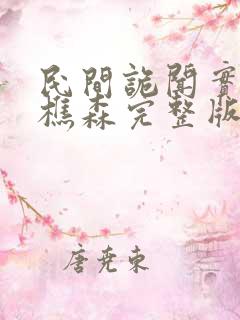 民間詭聞實
樵森完整版
唐堯東